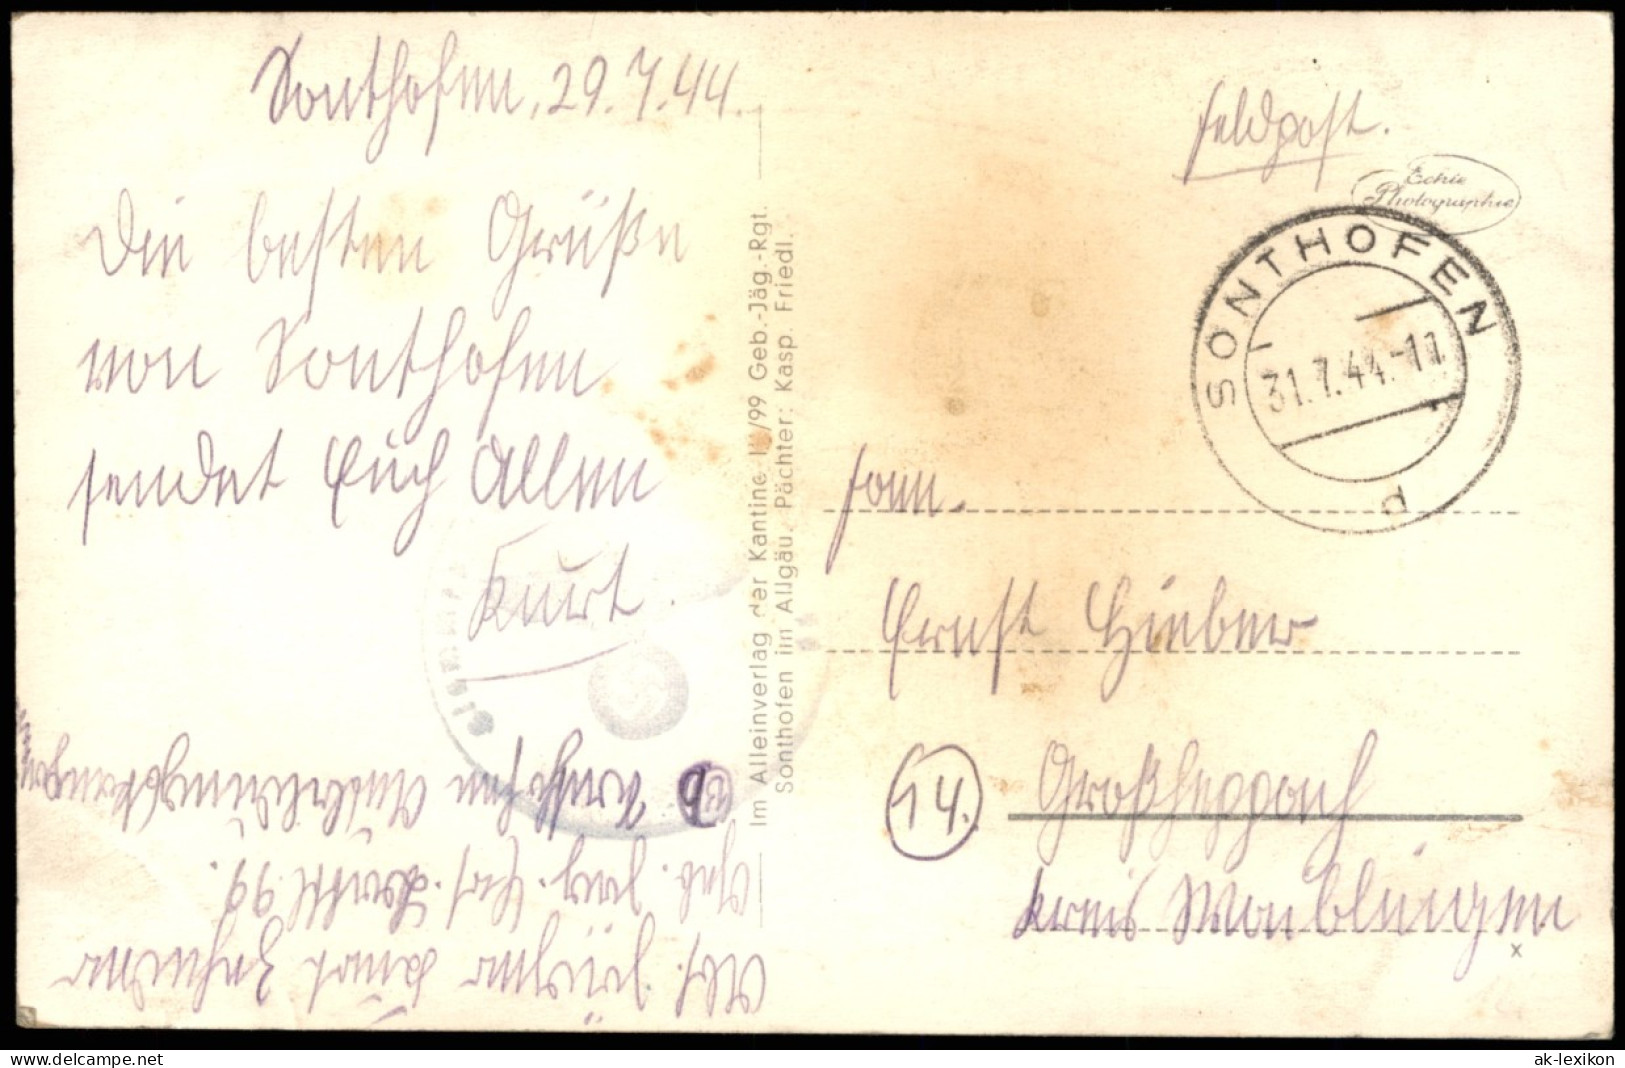 Sonthofen, 29.7.44.
Die besten Grüße
von Sonthofen
sendet Euch Allen
Kurt.
Abs. Kurt
Geb. Jäg. Ers. Batl. 99.
Sonthofen
Im Alleinverlag der Kantine /99 Geb.-Jäg.-Rgt.
Sonthofen im Allgäu. Pächter: Kasp. Friedl.
Feldpost.
Echte
Photographie
SONTHOFEN
31.7.44.-11
d
Fam.
Ernst Hieber
14.
Großheppach
Kreis Waiblingen
x
ak-lexikon.de
ak-lexikon.com